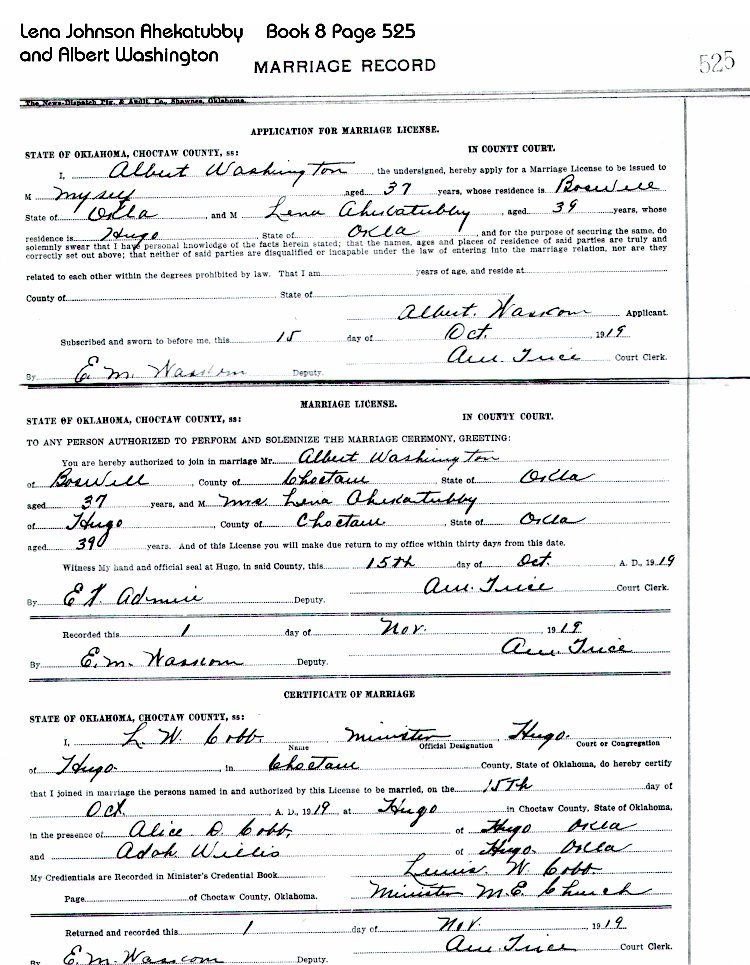 Lena Johnson Ahekatubby Book 8 Page 525
and Albert Washington
MARRIAGE RECORD 525
The News-Dispatch Ptg. & Audit. Co., Shawnee, Oklahoma.
APPLICATION FOR MARRIAGE LICENSE.
STATE OF OKLAHOMA, CHOCTAW COUNTY, ss: IN COUNTY COURT.
I, Albert Washington the undersigned, hereby apply for a Marriage License to be issued to
M myself aged 37 years, whose residence is Boswell
State of Okla and M Lena Ahekatubby, aged 39 years, whose
residence is Hugo State of Okla, and for the purpose of securing the same, do
solemnly swear that I have personal knowledge of the facts herein stated; that the names, ages and places of residence of said parties are truly and
correctly set out above; that neither of said parties are disqualified or incapable under the law of entering into the marriage relation, nor are they
related to each other within the degrees prohibited by law. That I am years of age, and reside at
County of State of
Albert Applicant.
Subscribed and sworn to before me, this 15 day of Oct. 1919
Trice Court Clerk.
By E. M. Wasscom Deputy.
MARRIAGE LICENSE.
STATE OF OKLAHOMA, CHOCTAW COUNTY, ss: IN COUNTY COURT.
TO ANY PERSON AUTHORIZED TO PERFORM AND SOLEMNIZE THE MARRIAGE CEREMONY, GREETING:
You are hereby authorized to join in marriage Mr. Albert Washington
of Boswell, County of Choctaw State of Okla
aged 37 years, and M Mrs Lena Ahekatubby
of Hugo, County of Choctaw, State of Okla
aged 39 years. And of this License you will make due return to my office within thirty days from this date.
Witness My hand and official seal at Hugo, in said County, this 15th day of Oct. A. D., 1919
Trice Court Clerk.
By Deputy.
Recorded this 1 day of Nov. 1919
Trice
By E. M. Wasscom Deputy.
CERTIFICATE OF MARRIAGE
STATE OF OKLAHOMA, CHOCTAW COUNTY, ss:
I, L. W. Cobb. Minister Hugo.
Name Official Designation Court or Congregation
of Hugo. in Choctaw County, State of Oklahoma, do hereby certify
that I joined in marriage the persons named in and authorized by this License to be married, on the 15th day of
Oct A. D., 1919, at Hugo in Choctaw County, State of Oklahoma,
in the presence of Alice D. Cobb, of Hugo Okla
and Adah Willis of Hugo. Okla
My Credentials are Recorded in Minister's Credential Book Lewis W. Cobb.
Page of Choctaw County, Oklahoma. Minister M.E. Church
Returned and recorded this 1 day of Nov. 1919
Trice Court Clerk.
By E. M. Wasscom Deputy.